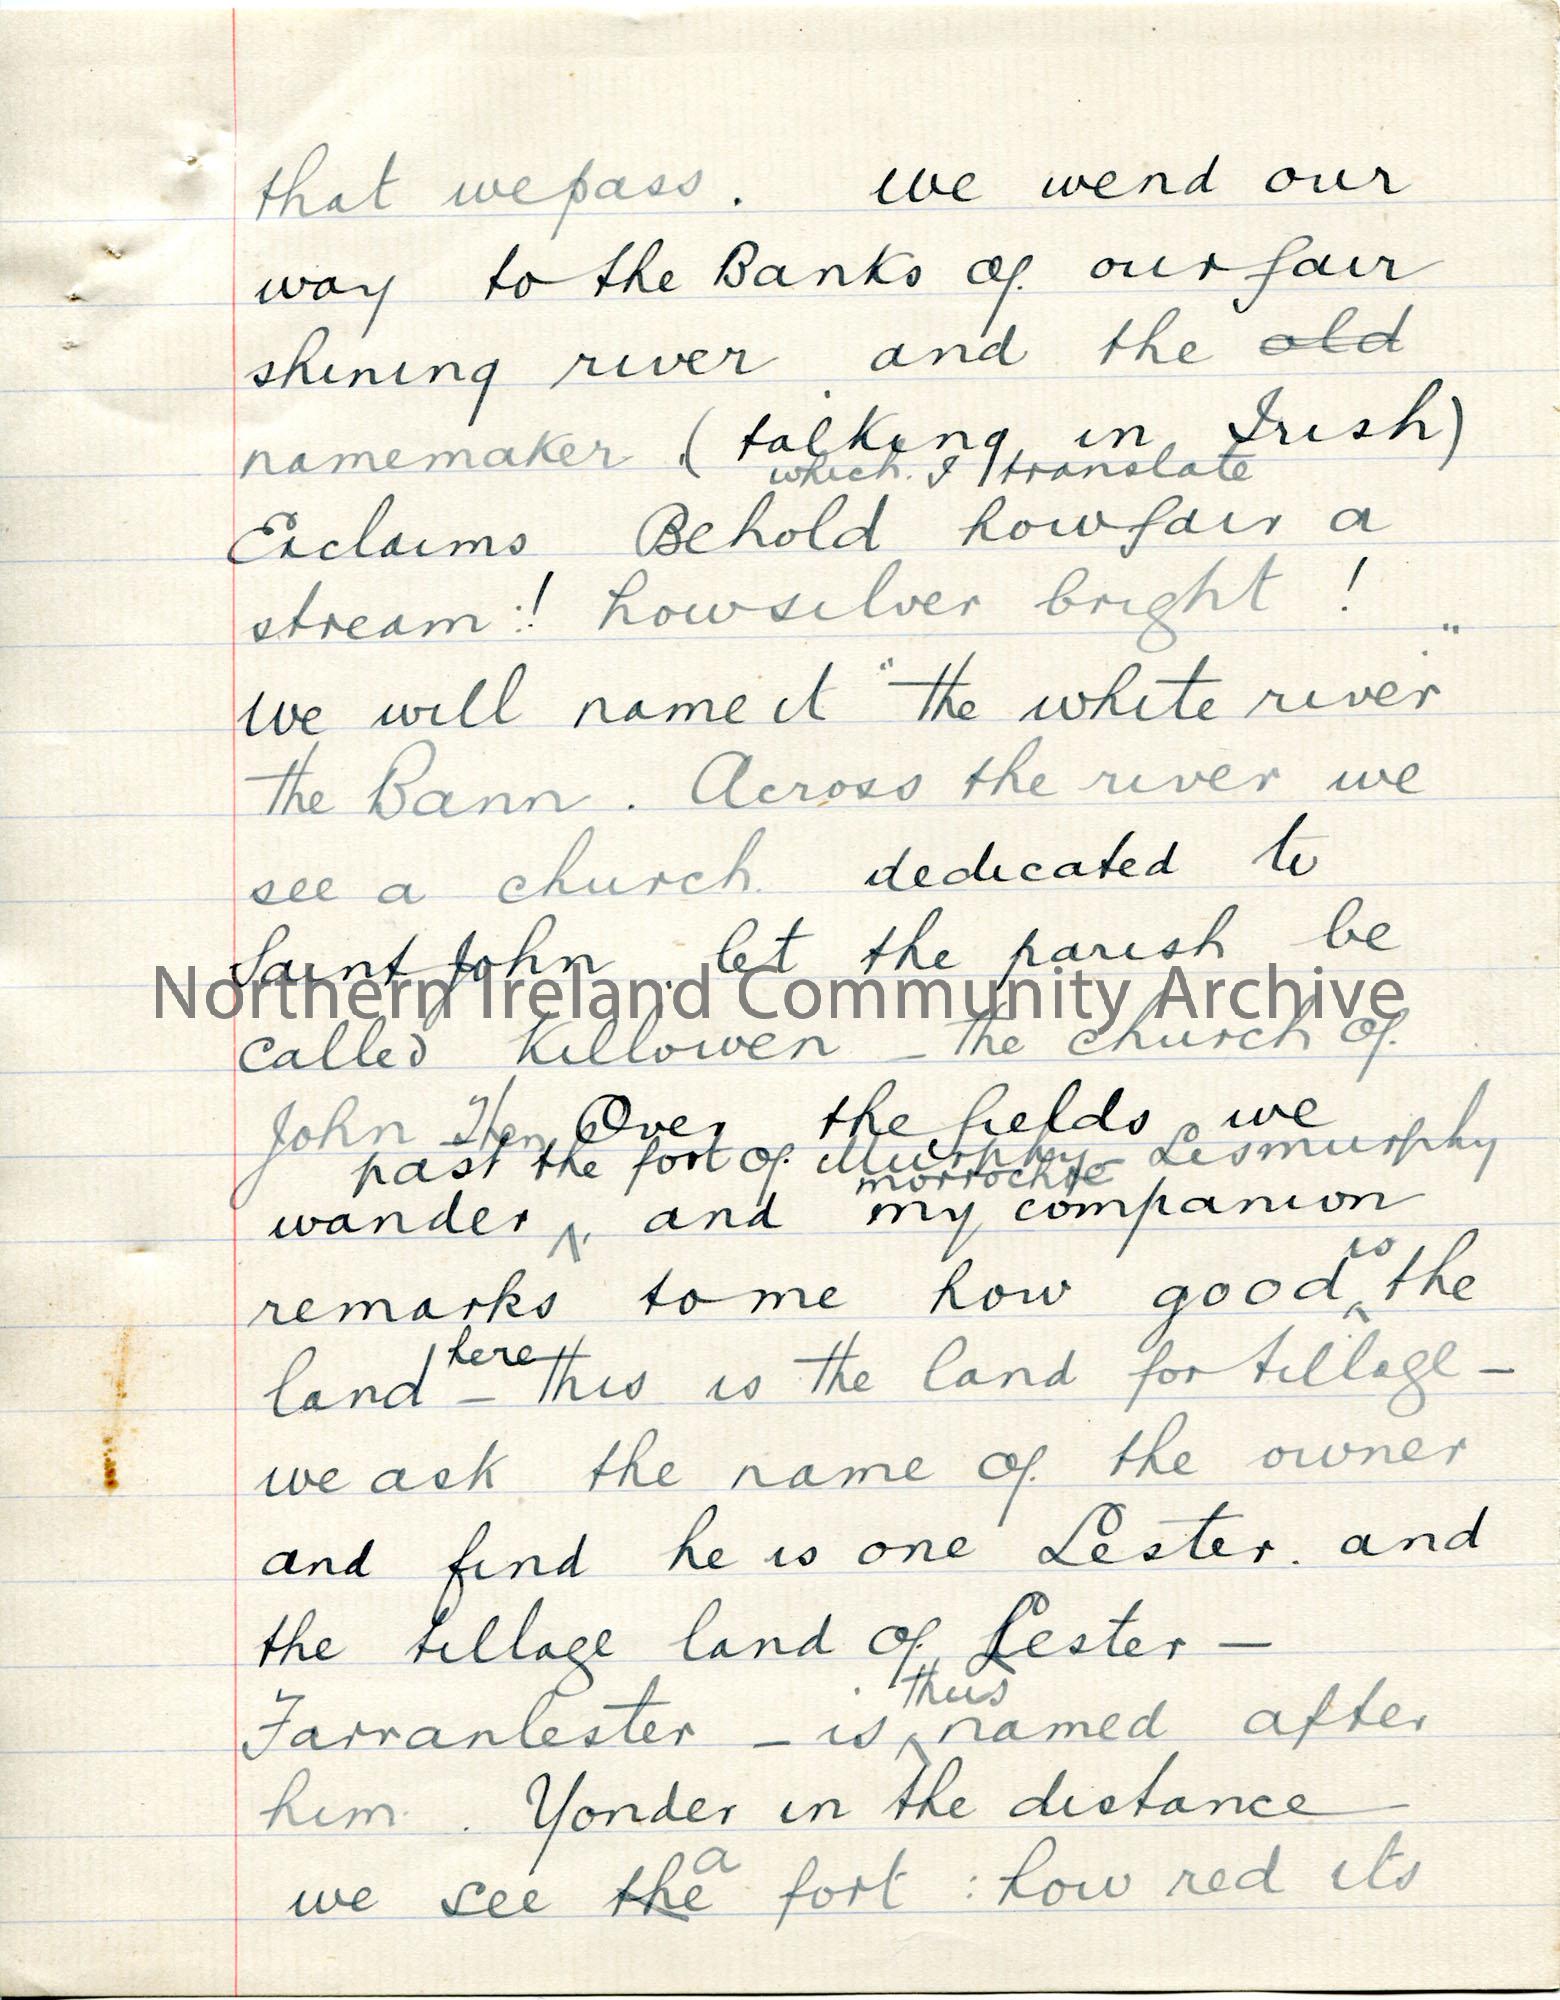 that we pass. we wend our
way to the Banks of our fair
shining river and the old
namemaker (talking in Irish)
which I translate
Exclaims Behold how fair a
stream! how silver bright!
we will name it "the white river"
the Bann. Across the river we
see a church dedicated to
Saint John let the parish be
Northern Ireland Community Archive
called Killowen - the church of
John Then Over the fields we
past the fort of Murphy - Lismurphy
morrochie
wander and my companion
is
remarks to me how good the
here
land - this is the land for tillage -
we ask the name of the owner
and find he is one Lester. and
the tillage land of Lester -
thus
Farranlester - is named after
him. Yonder in the distance
a
we see the fort : how red its